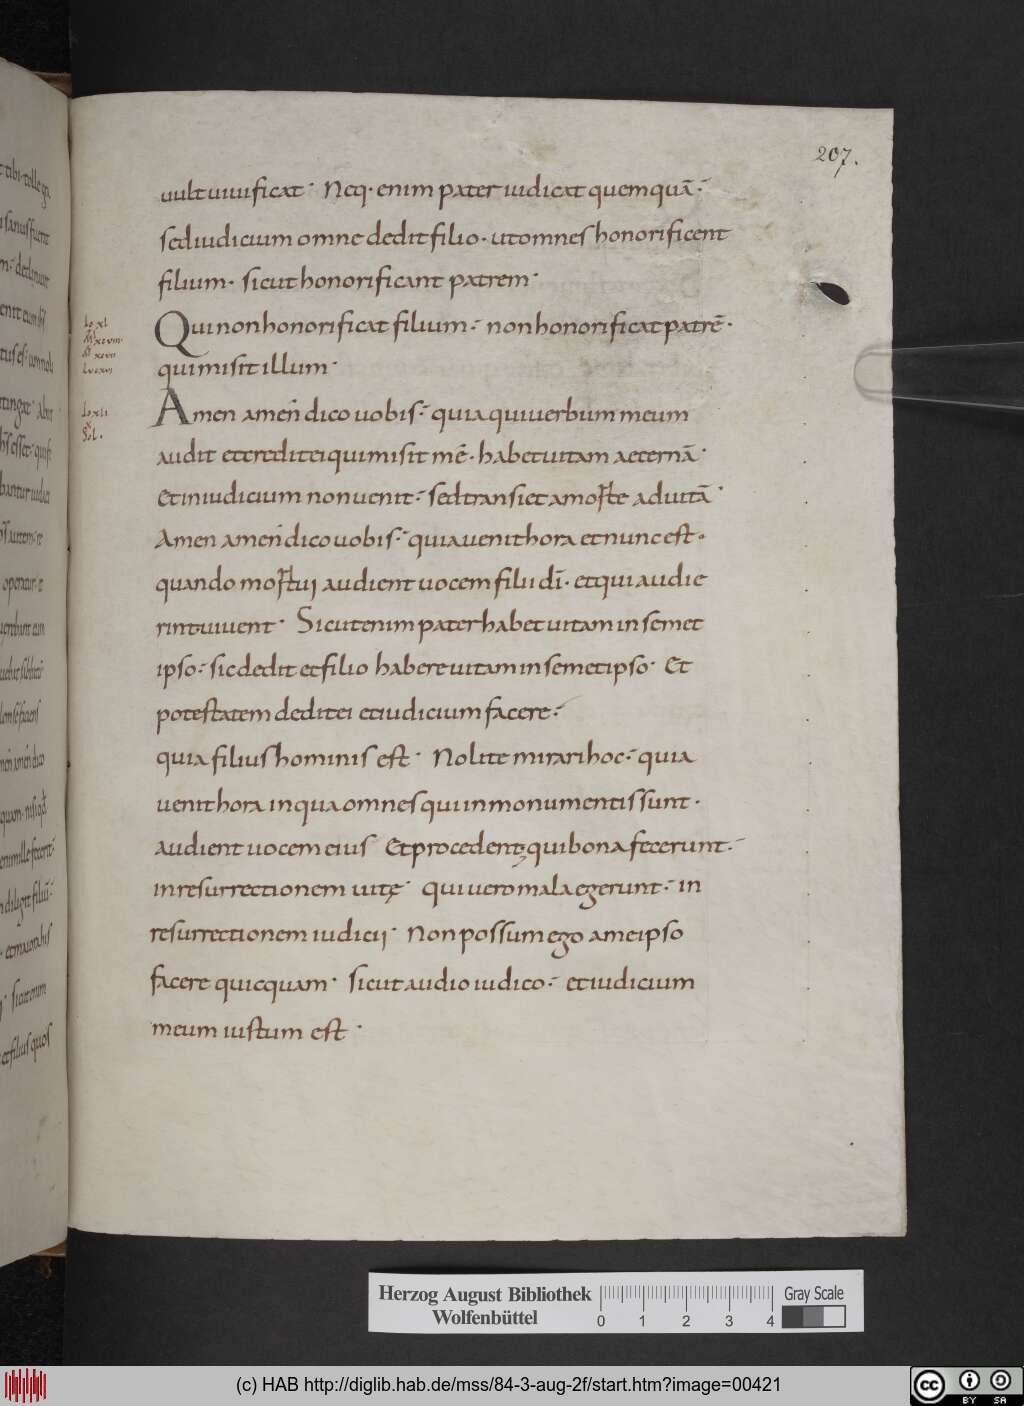 207.
uult uiuificat· Neq· enim pater iudicat quemquā·
sed iudicium omne dedit filio· ut omnes honorificent
filium· sicut honorificant patrem·
Qui non honorificat filium· non honorificat patrē·
qui misit illum·
Amen amen dico uobis· quia qui uerbum meum
audit et credit ei qui misit mē· habet uitam aeternā·
Et in iudicium non uenit· sed transiet a morte ad uitā·
Amen amen dico uobis· quia uenit hora et nunc est·
quando mortui audient uocem filii dī· et qui audie
rint uiuent· Sicut enim pater habet uitam in semet
ipso· sic dedit et filio habere uitam in semetipso· Et
potestatem dedit ei et iudicium facere·
quia filius hominis est· Nolite mirari hoc· quia
uenit hora in qua omnes qui in monumentis sunt·
audient uocem eius Et procedent qui bona fecerunt·
in resurrectionem uitę· qui uero mala egerunt· in
resurrectionem iudicii· Non possum ego a me ipso
facere quicquam· sicut audio iudico· et iudicium
meum iustum est·
Herzog August Bibliothek
Wolfenbüttel
0 1 2 3 4
Gray Scale
(c) HAB http://diglib.hab.de/mss/84-3-aug-2f/start.htm?image=00421
cc BY SA